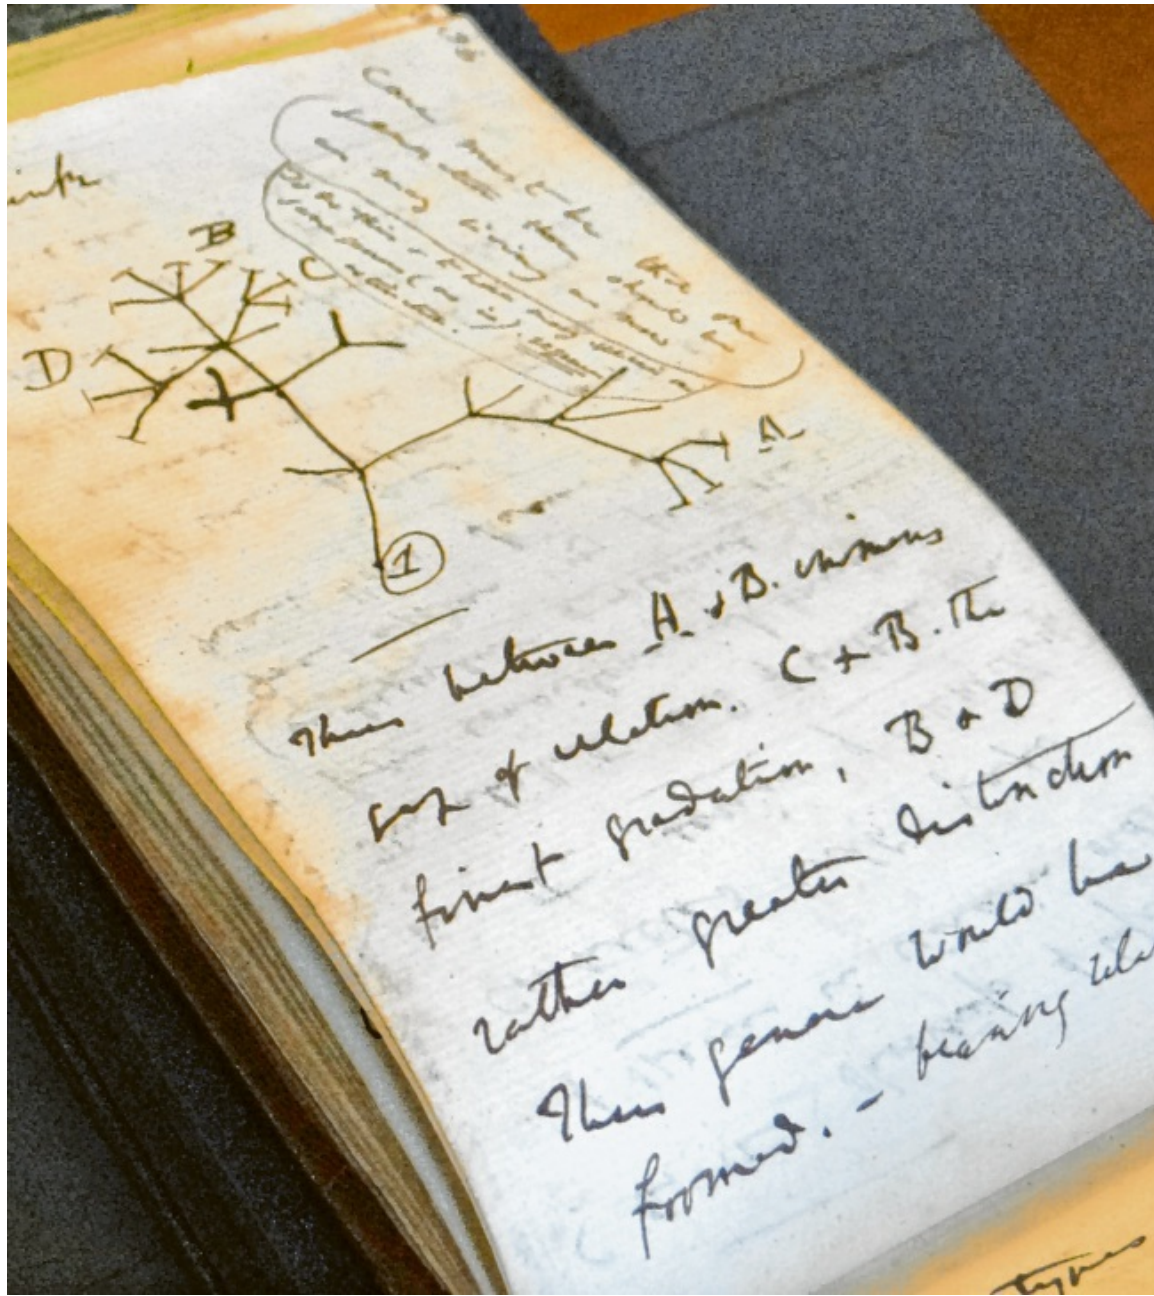 36
Case must be
that one
generation then
should be
as many living
as now
To do this & to have many species in
same genus (as is). requires
extinction.
B
C
D
A
1
Thus between A & B. immens
gap of relation. C & B. the
finest gradation, B & D
rather greater distinction
Thus genera would have
formed. — bearing rela
types